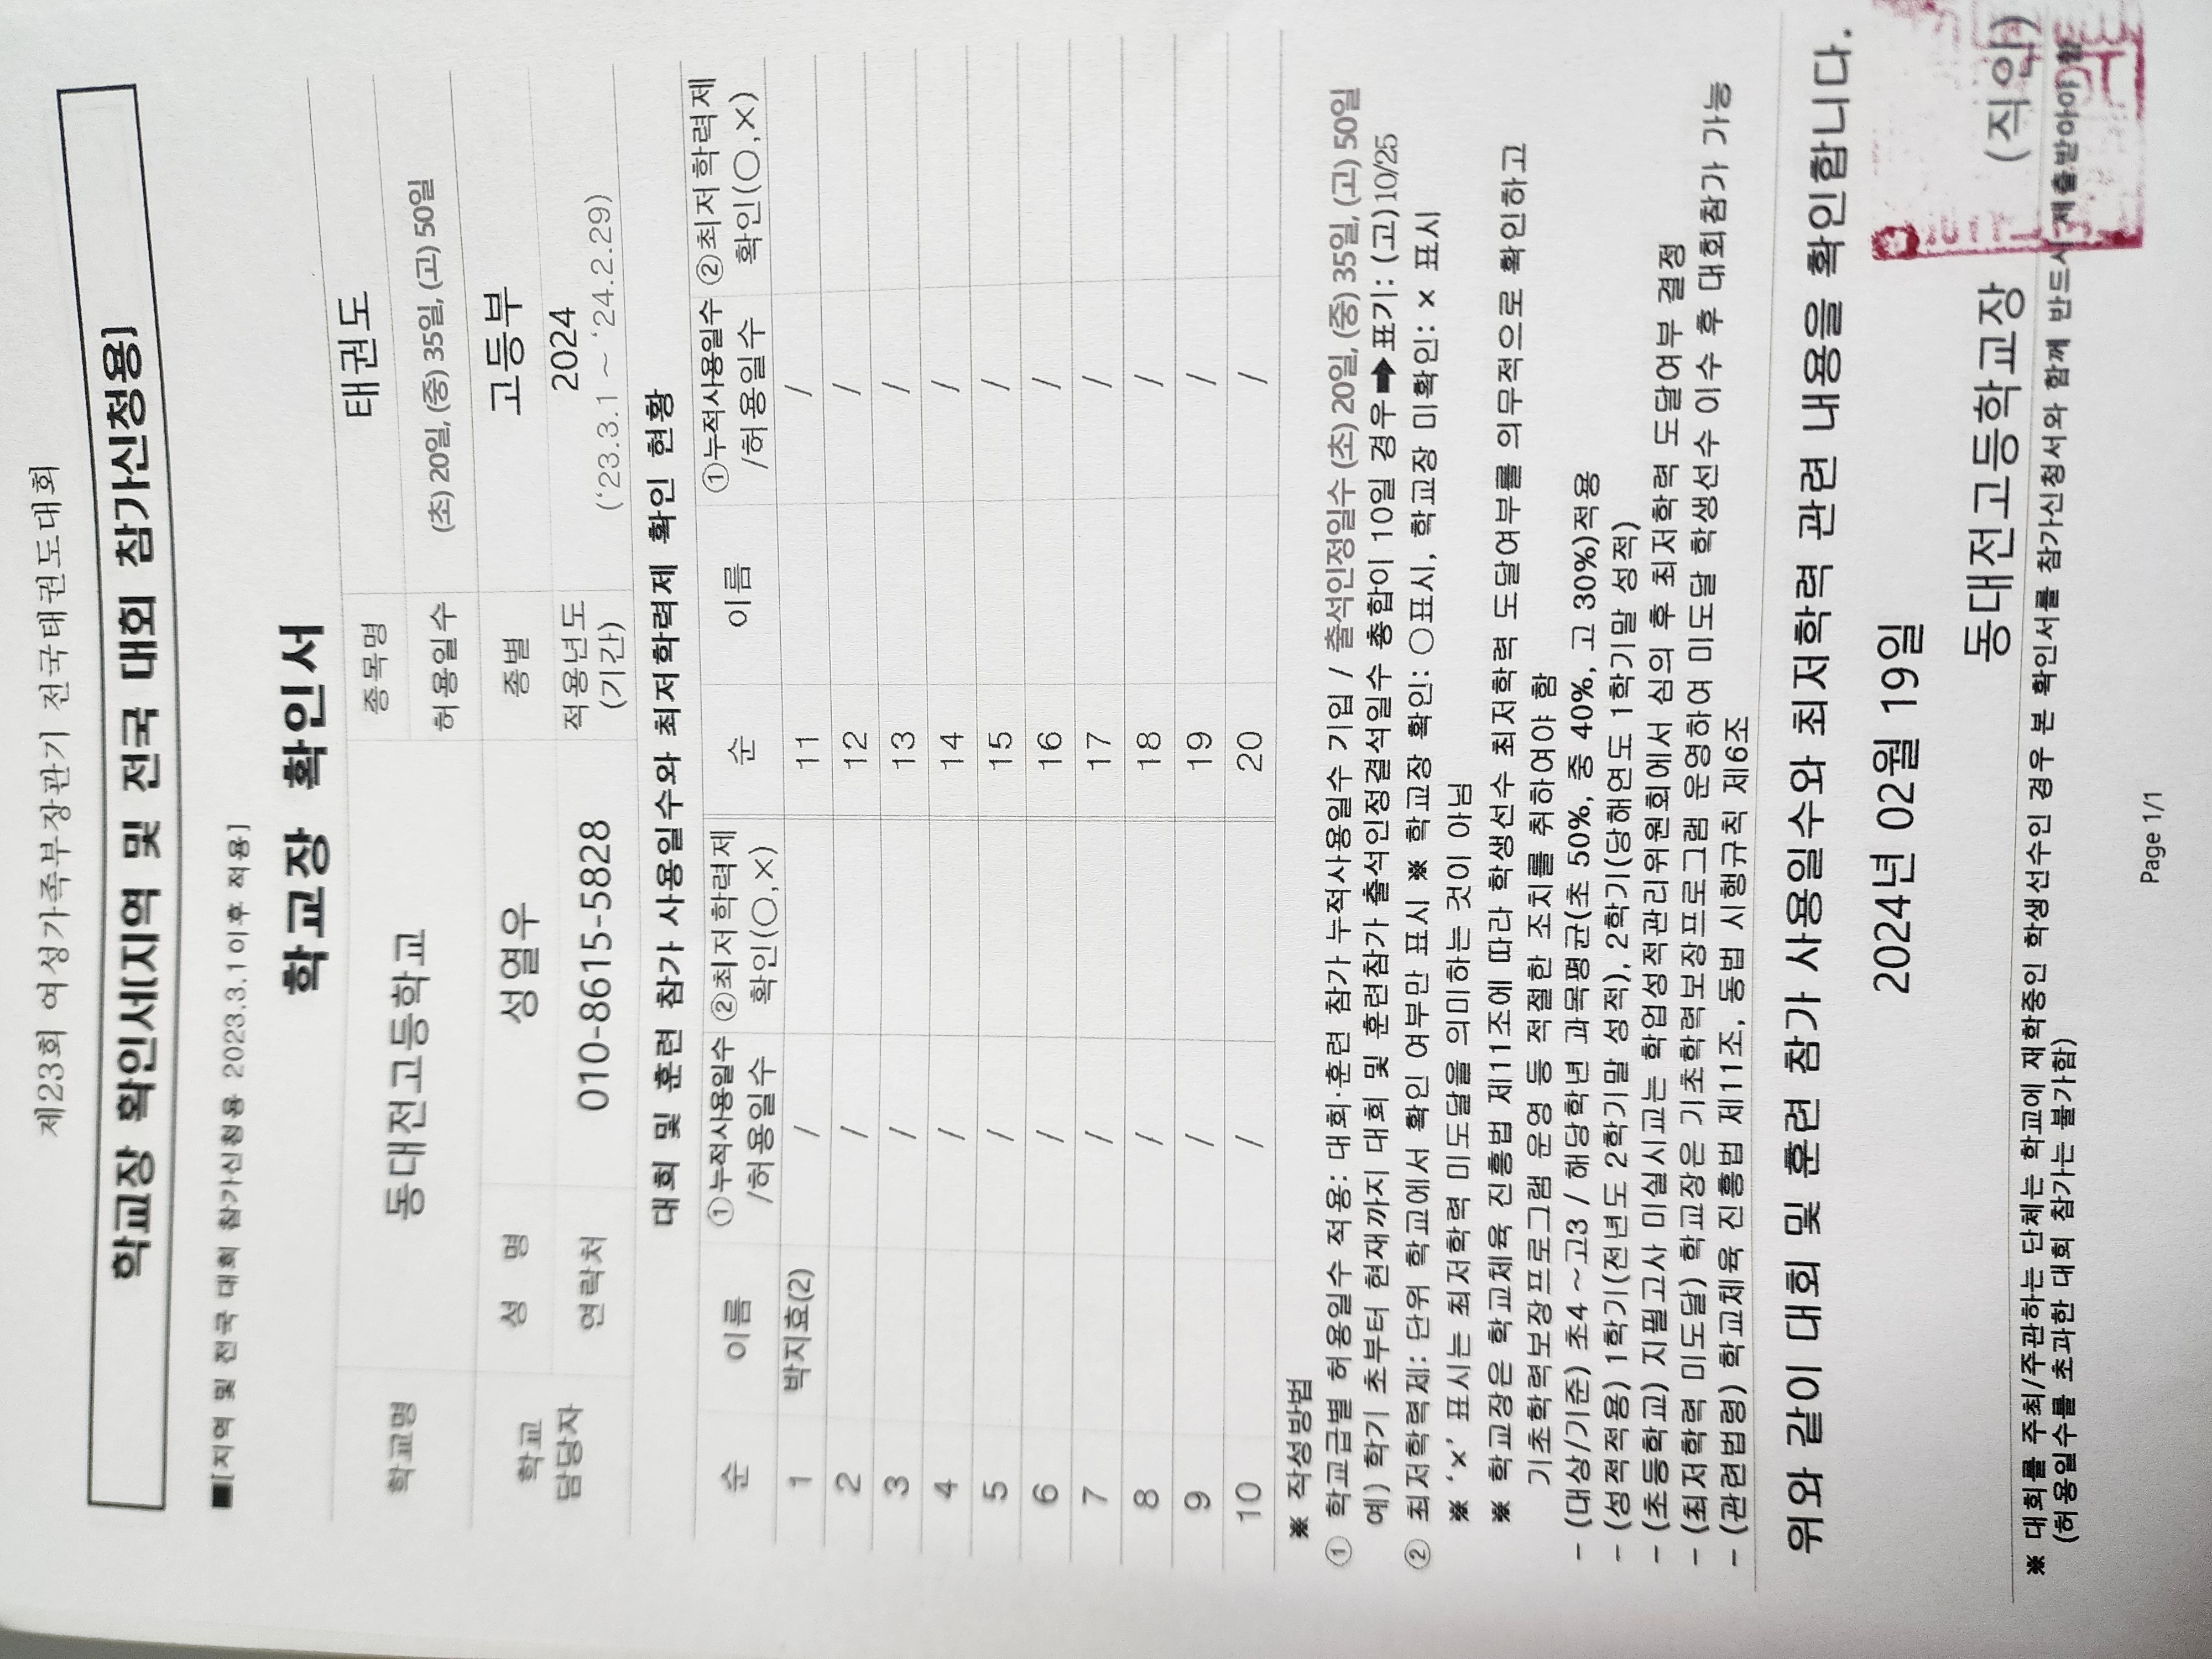 제23회 여성가족부장관기 전국태권도대회
학교장 확인서(지역 및 전국 대회 참가신청용)
■[지역 및 전국 대회 참가신청용 2023.3.1이후 적용]
학교장 확인서
학교명 동대전고등학교 종목명 태권도
허용일수 (초) 20일, (중) 35일, (고) 50일
학교 담당자 성 명 성열우 종별 고등부
연락처 010-8615-5828 적용년도 (기간) 2024
('23.3.1 ~ '24.2.29)
대회 및 훈련 참가 사용일수와 최저학력제 확인 현황
순 이름 ①누적사용일수 /허용일수 ②최저학력제 확인(○,×) 순 이름 ①누적사용일수 /허용일수 ②최저학력제 확인(○,×)
1 박지효(2) / 11 /
2 / 12 /
3 / 13 /
4 / 14 /
5 / 15 /
6 / 16 /
7 / 17 /
8 / 18 /
9 / 19 /
10 / 20 /
※ 작성방법
① 학교급별 허용일수 적용: 대회·훈련 참가 누적사용일수 기입 / 출석인정일수 (초) 20일, (중) 35일, (고) 50일
예) 학기 초부터 현재까지 대회 및 훈련참가 출석인정결석일수 총합이 10일 경우➡표기: (고)10/25
② 최저학력제: 단위 학교에서 확인 여부만 표시 ※ 학교장 확인: ○표시, 학교장 미확인: × 표시
※ '×' 표시는 최저학력 미도달을 의미하는 것이 아님
※ 학교장은 학교체육 진흥법 제11조에 따라 학생선수 최저학력 도달여부를 의무적으로 확인하고
기초학력보장프로그램 운영 등 적절한 조치를 취하여야 함
- (대상/기준) 초4 ~ 고3 / 해당학년 과목평균(초 50%, 중 40%, 고 30%)적용
- (성적적용) 1학기(전년도 2학기말 성적), 2학기(당해연도 1학기말 성적)
- (초등학교) 지필고사 미실시교는 학업성적관리위원회에서 심의 후 최저학력 도달여부 결정
- (최저학력 미도달) 학교장은 기초학력보장프로그램 운영하여 미도달 학생선수 이수 후 대회참가 가능
- (관련법령) 학교체육 진흥법 제11조, 동법 시행규칙 제6조
위와 같이 대회 및 훈련 참가 사용일수와 최저학력 관련 내용을 확인합니다.
2024년 02월 19일
동대전고등학교장 (직인)
※ 대회를 주최/주관하는 단체는 학교에 재학중인 학생선수인 경우 본 확인서를 참가신청서와 함께 반드시 제출받아야 함
(허용일수를 초과한 대회 참가는 불가함)
Page 1/1